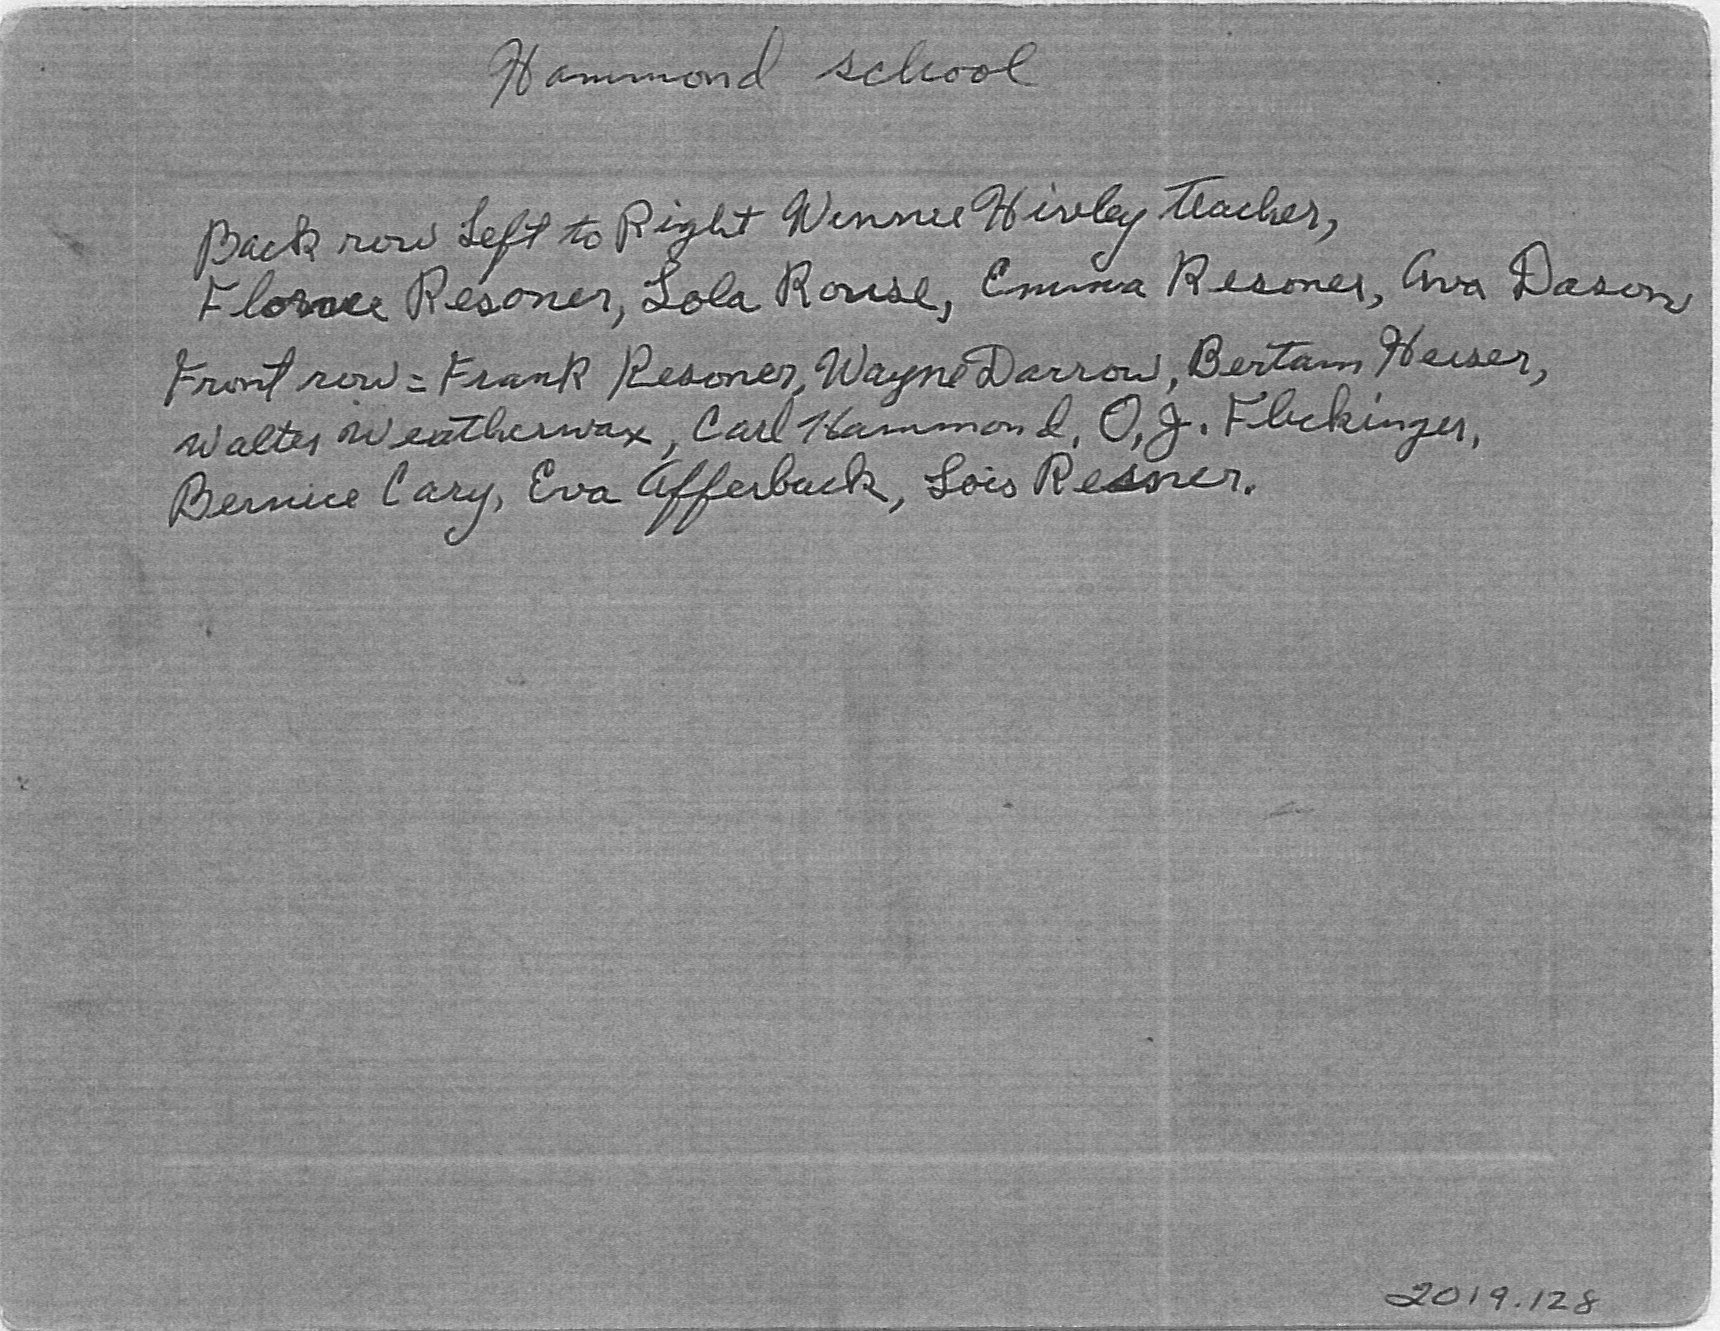 Hammond school
Back row Left to Right Winnie Hivley teacher,
Florence Resoner, Lola Rouse, Emma Resoner, Ava Dason
Front row = Frank Resoner, Wayne Darrow, Bertam Heiser,
Walter Weatherwax, Carl Hammond, O, J. Flickinger,
Bernice Cary, Eva Afferbuck, Lois Resoner.
2019.128